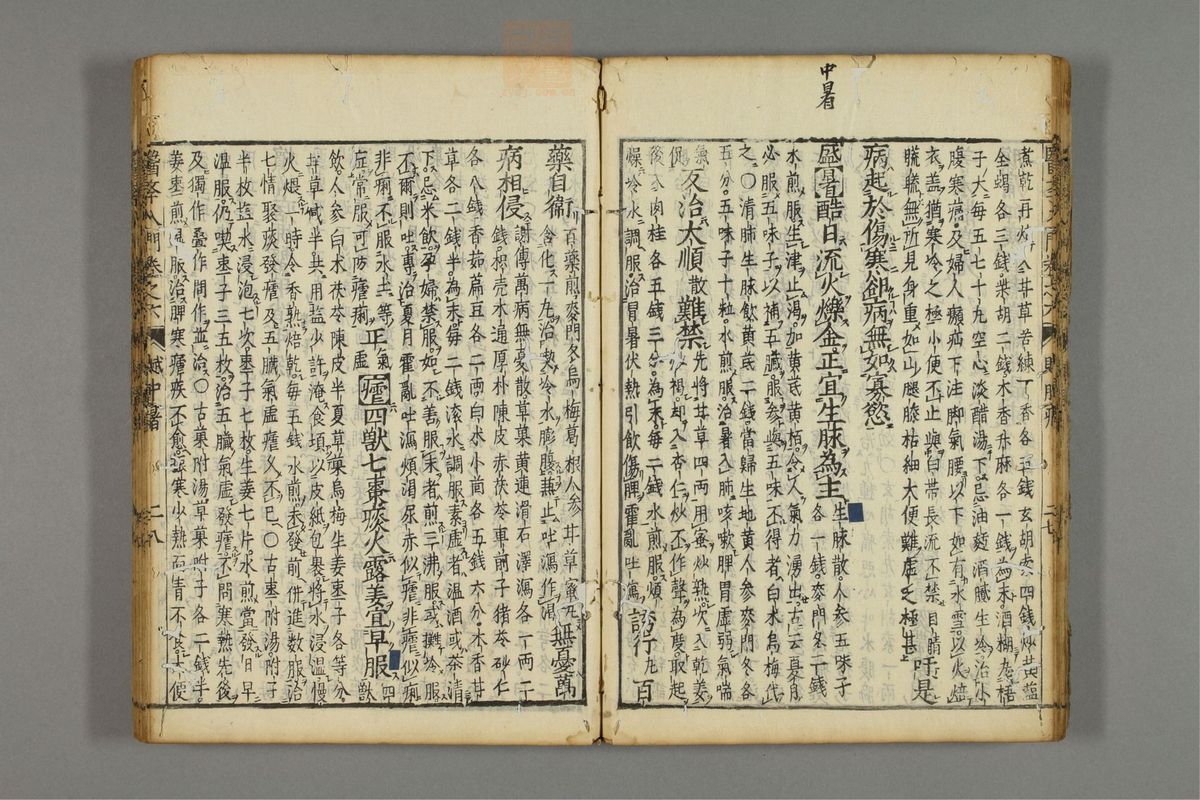 中暑
煮乾再炒八錢甘草苦練丁香各五錢玄胡索四錢炒共鹽
金蝎各三錢柴胡二錢木香升麻各一錢為末酒糊九梧
子大每五七十九空心淡醋湯下忌油麪滑膩生冷治小
腹寒疝及婦人癩疝下注脚氣腰以下如有氷雪以火焙
衣蓋猶寒冷之極小便不止與白帶長流不禁目睛
䀮䀮無所見身重如山腿膝枯細大便難虛乏極甚吁是
病起於傷寒卻病無如寡慾
盛暑酷日流火爍金正宜生脉為主生脉散人參五味子
各一錢麥門冬二錢
水煎服生津止渴加黃芪黃栢令人氣力湧出古云夏月
必服五味子以補五臟服參與五味不得者白朮烏梅代
之○清肺生脉飲黃芪二錢當歸生地黃人參麥門冬各
五分五味子十粒水煎服治暑入肺咳嗽脾胃虛弱氣喘
反治大順散難禁先將甘草四兩用蜜炒熟次入乾姜
四兩炒令裂却入杏仁炒不作聲為度取起
後入肉桂各五錢三分為末每二錢水煎服煩
燥冷水調服治冒暑伏熱引飲傷脾霍亂吐瀉誘行九百
藥自衞百藥煎麥門冬烏梅葛根人參甘草蜜丸無憂萬
含化一丸治熱冷水膨腹兼止吐瀉作渴
病相侵謝傳萬病無憂散草菓黃連滑石澤瀉各一兩二
錢枳壳木通厚朴陳皮赤茯苓車前子猪苓砂仁
各八錢香茹扁豆各二兩白朮小茴各五錢六分木香甘
草各二錢半為末每二錢滾水調服素虛者溫酒或茶清
下忌米飲孕婦禁服如不善服末者煎三沸服或攤冷服
不爾則吐專治夏月霍亂吐瀉煩渴尿赤似瘧非瘧似痢
非痢不服水土等正氣瘧四獸七棗痰火露姜宜早服四獸
症常服可防瘧痢虛
飲人參白朮茯苓陳皮半夏草菓烏梅生姜棗子各等分
甘草減半共用鹽少許淹食頃以皮紙包裹將水浸溫慢
火煨一時令香熟焙乾每五錢水煎未發前併進數服治
七情聚痰發瘧及五臟氣虛瘧久不已○古棗附湯附子
半枚鹽水浸泡七次棗子七枚生姜七片水煎當發日早
溫服仍喫棗子三五枚治五臟氣虛發瘧不問寒熱先後
及獨作疊作間作並治○古菓附湯草菓附子各二錢半
姜棗煎服治脾寒瘧疾不愈振寒少熱面青不食大便
醫學入門卷之六 賦中暑 二八